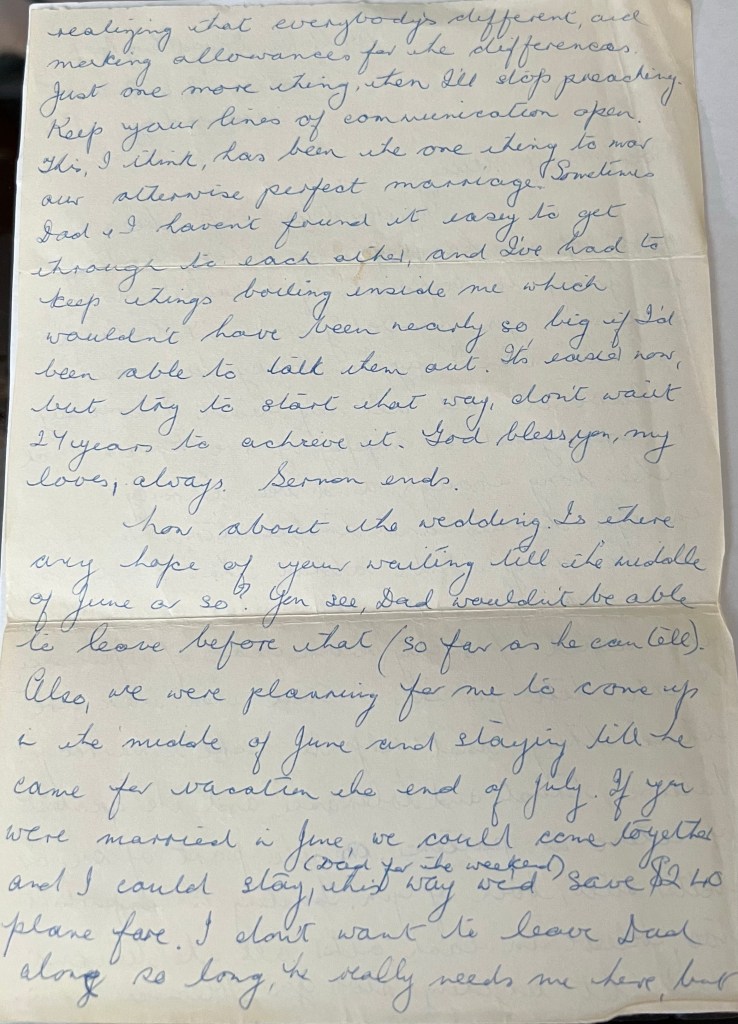 realizing that everybody's different, and
making allowances for the differences.
Just one more thing, then I'll stop preaching.
Keep your lines of communication open.
This, I think, has been the one thing to mar
our otherwise perfect marriage. Sometimes
Dad & I haven't found it easy to get
through to each other, and I've had to
keep things boiling inside me which
wouldn't have been nearly so big if I'd
been able to talk them out. It's easier now,
but try to start that way, don't wait
24 years to achieve it. God bless you, my
loves, always. Sermon ends.
how about the wedding. Is there
any hope of your waiting till the middle
of June or so? You see, Dad wouldn't be able
to leave before that (so far as he can tell).
Also, we were planning for me to come up
in the middle of June and staying till he
came for vacation the end of July. If you
were married in June, we could come together
(Dad for the weekend)
and I could stay, this way we'd save $240
plane fare. I don't want to leave Dad
along so long, he really needs me here, but